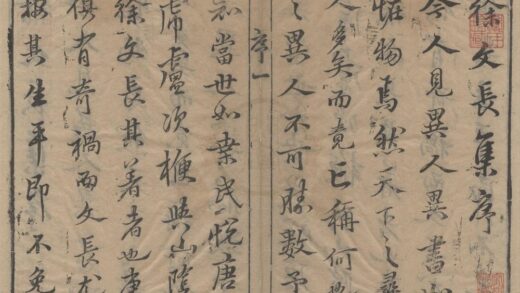 徐文長集序
今人見異人異書
怪物焉然天下之尋
人多矣而竟稱何
之異人不可勝數予
序一
當世如桑民悅唐
虎盧次楩與山陰
徐文長其著者也
俱有奇禍而文長尤
按其生平即不免